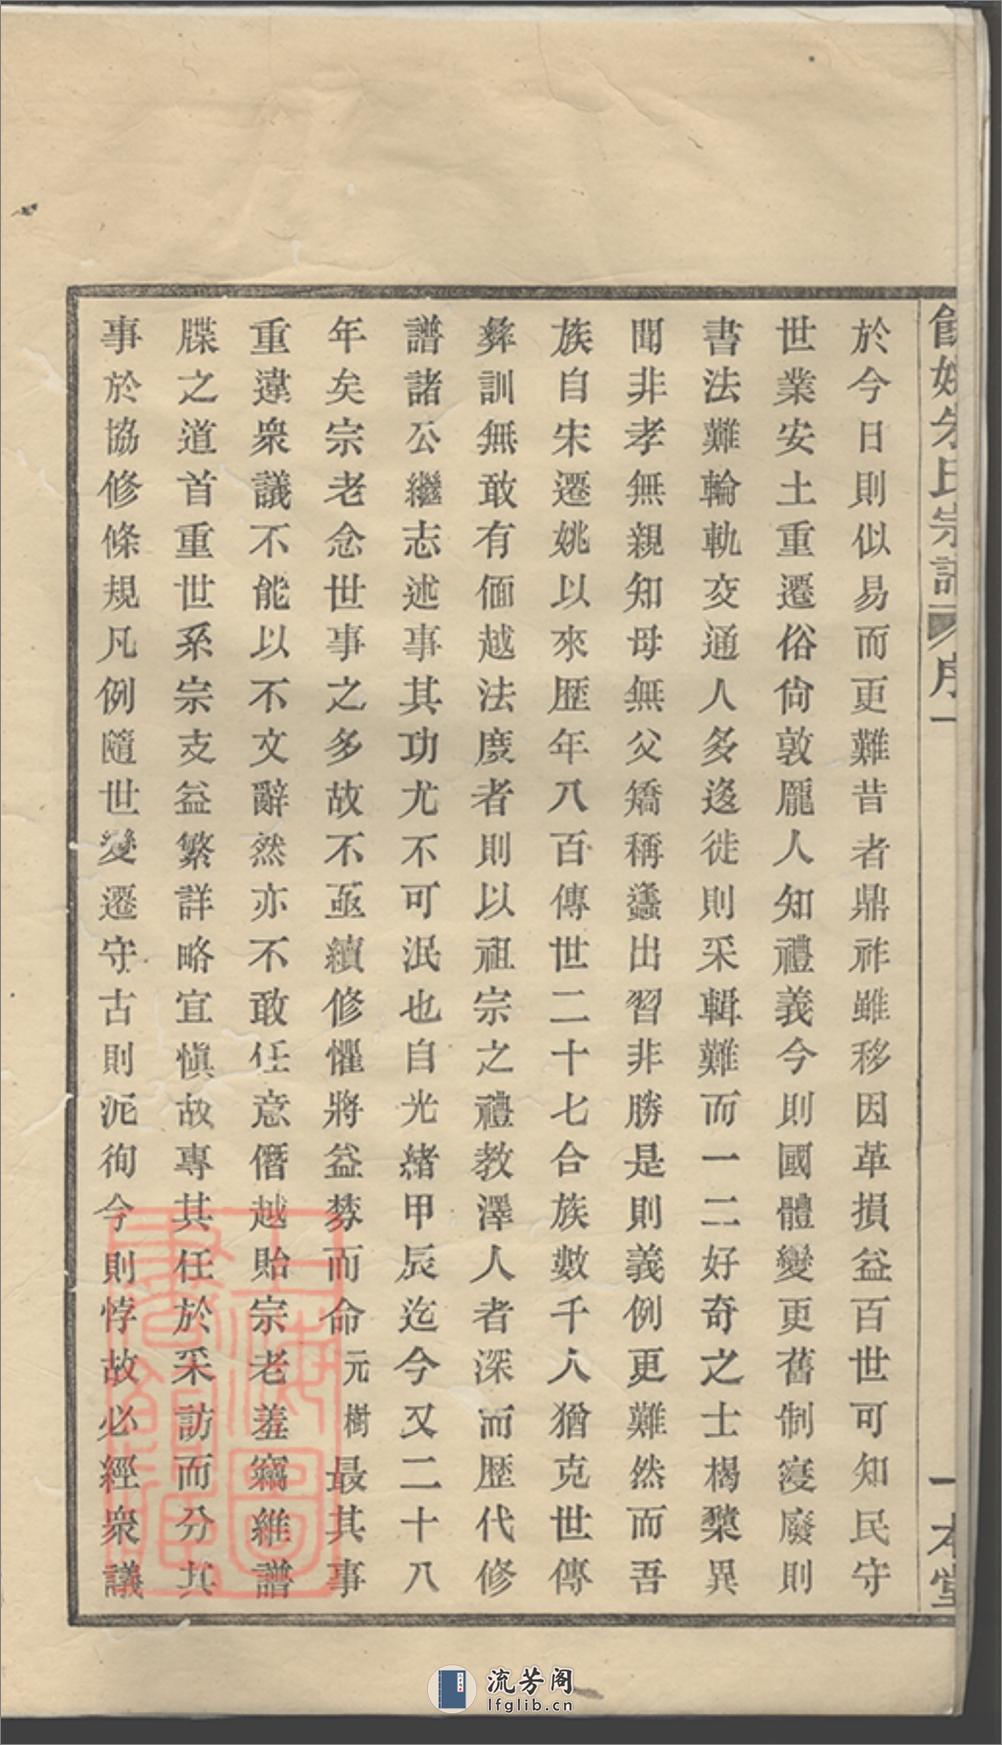 餘姚朱氏宗譜 序 一 一本堂
於今日則似易而更難昔者鼎祚雖移因革損益百世可知民守
世業安土重遷俗尙敦龐人知禮義今則國體變更舊制寖廢則
書法難輪軌交通人多迻徙則采輯難而一二好奇之士楬櫫異
聞非孝無親知母無父矯稱蠭出習非勝是則義例更難然而吾
族自宋遷姚以來歷年八百傳世二十七合族數千人猶克世傳
彝訓無敢有偭越法度者則以祖宗之禮教澤人者深而歷代修
譜諸公繼志述事其功尤不可泯也自光緖甲辰迄今又二十八
年矣宗老念世事之多故不亟續修懼將益棼而命元樹最其事
重違衆議不能以不文辭然亦不敢任意僭越貽宗老羞竊維譜
牒之道首重世系宗支益繁詳略宜愼故專其任於采訪而分其
事於協修條規凡例隨世變遷守古則泥徇今則悖故必經衆議
上海圖書館藏
流芳阁
lfglib.cn